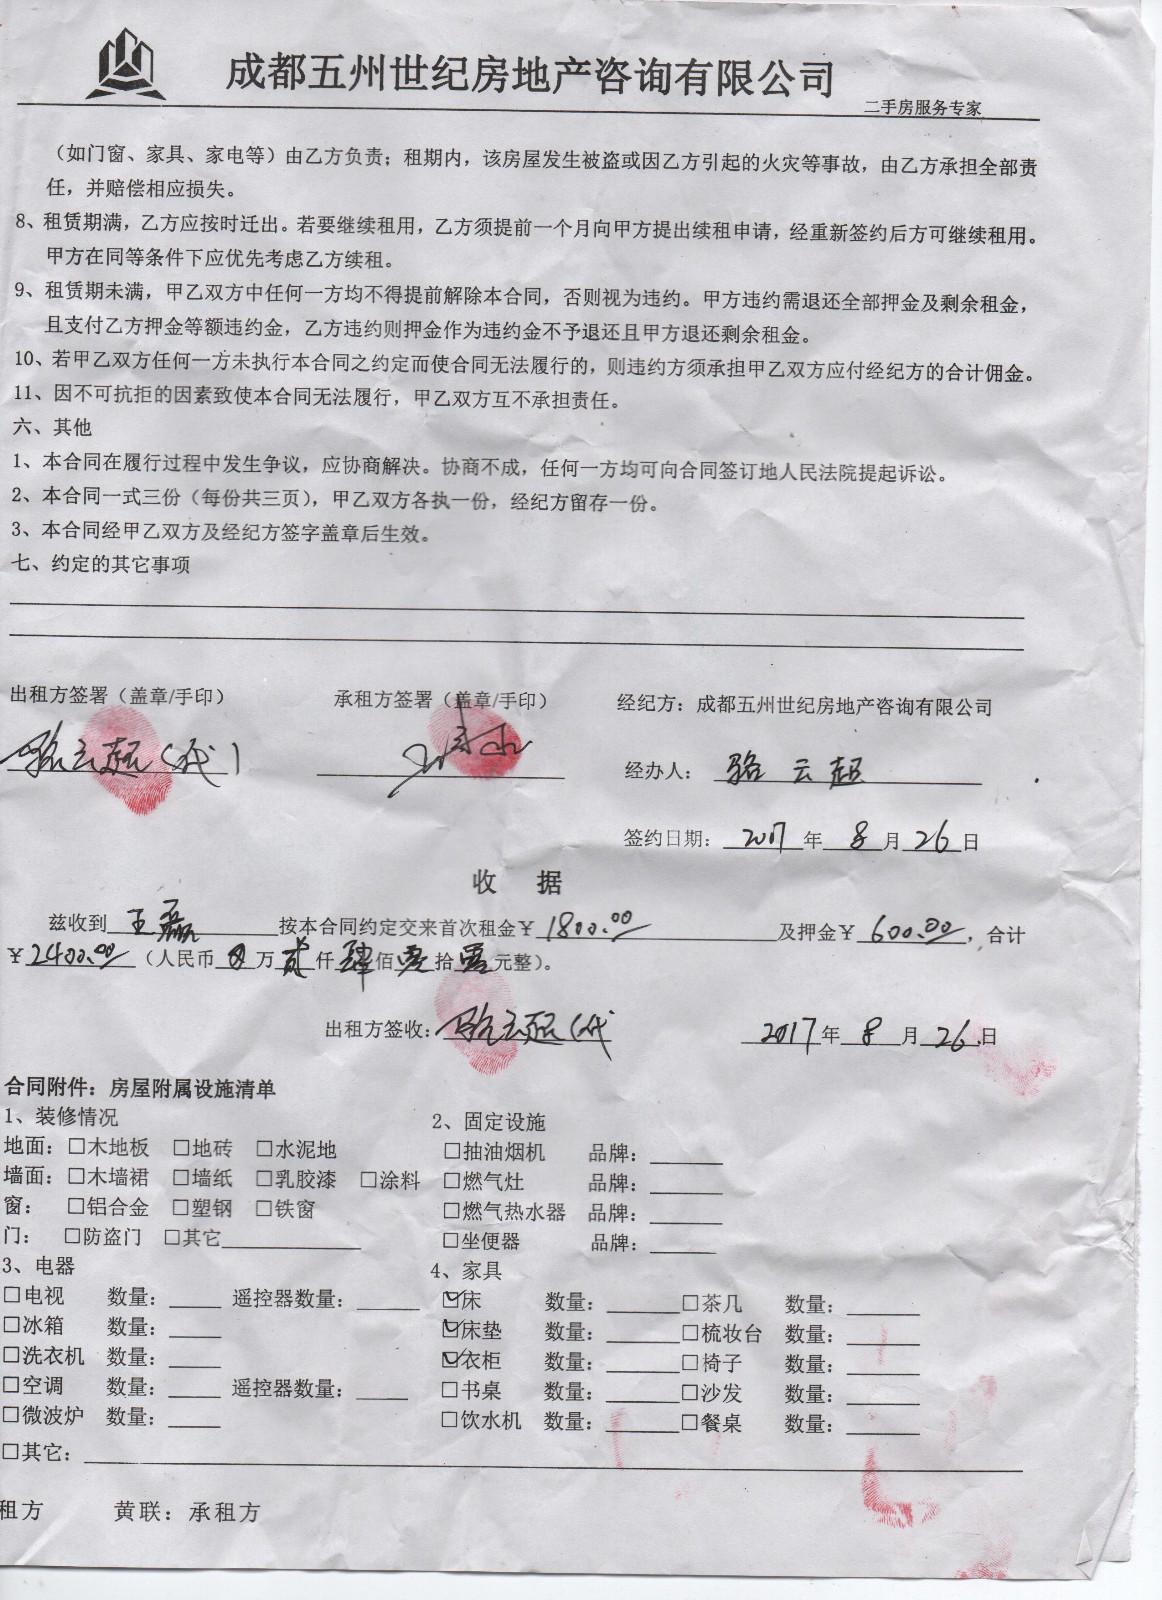 成都五州世纪房地产咨询有限公司
二手房服务专家
（如门窗、家具、家电等）由乙方负责；租期内，该房屋发生被盗或因乙方引起的火灾等事故，由乙方承担全部责
任，并赔偿相应损失。
8、租赁期满，乙方应按时迁出。若要继续租用，乙方须提前一个月向甲方提出续租申请，经重新签约后方可继续租用。
甲方在同等条件下应优先考虑乙方续租。
9、租赁期未满，甲乙双方中任何一方均不得提前解除本合同，否则视为违约。甲方违约需退还全部押金及剩余租金，
且支付乙方押金等额违约金，乙方违约则押金作为违约金不予退还且甲方退还剩余租金。
10、若甲乙双方任何一方未执行本合同之约定而使合同无法履行的，则违约方须承担甲乙双方应付经纪方的合计佣金。
11、因不可抗拒的因素致使本合同无法履行，甲乙双方互不承担责任。
六、其他
1、本合同在履行过程中发生争议，应协商解决。协商不成，任何一方均可向合同签订地人民法院提起诉讼。
2、本合同一式三份（每份共三页），甲乙双方各执一份，经纪方留存一份。
3、本合同经甲乙双方及经纪方签字盖章后生效。
七、约定的其它事项
出租方签署（盖章/手印） 承租方签署（盖章/手印） 经纪方：成都五州世纪房地产咨询有限公司
骆云超（代）
经办人： 骆云超
签约日期： 2017 年 8 月 26 日
收 据
兹收到 王磊 按本合同约定交来首次租金￥ 1800.00 及押金￥ 600.00 ，合计
￥ 2400.00 （人民币 0 万 贰 仟 肆 佰 零 拾 零 元整）。
出租方签收： 骆云超（代 2017 年 8 月 26 日
合同附件：房屋附属设施清单
1、装修情况 2、固定设施
地面：□木地板 □地砖 □水泥地 □抽油烟机 品牌：
墙面：□木墙裙 □墙纸 □乳胶漆 □涂料 □燃气灶 品牌：
窗： □铝合金 □塑钢 □铁窗 □燃气热水器 品牌：
门： □防盗门 □其它 □坐便器 品牌：
3、电器 4、家具
□电视 数量： 遥控器数量： ☑床 数量： □茶几 数量：
□冰箱 数量： ☑床垫 数量： □梳妆台 数量：
□洗衣机 数量： ☑衣柜 数量： □椅子 数量：
□空调 数量： 遥控器数量： □书桌 数量： □沙发 数量：
□微波炉 数量： □饮水机 数量： □餐桌 数量：
□其它：
租方 黄联：承租方